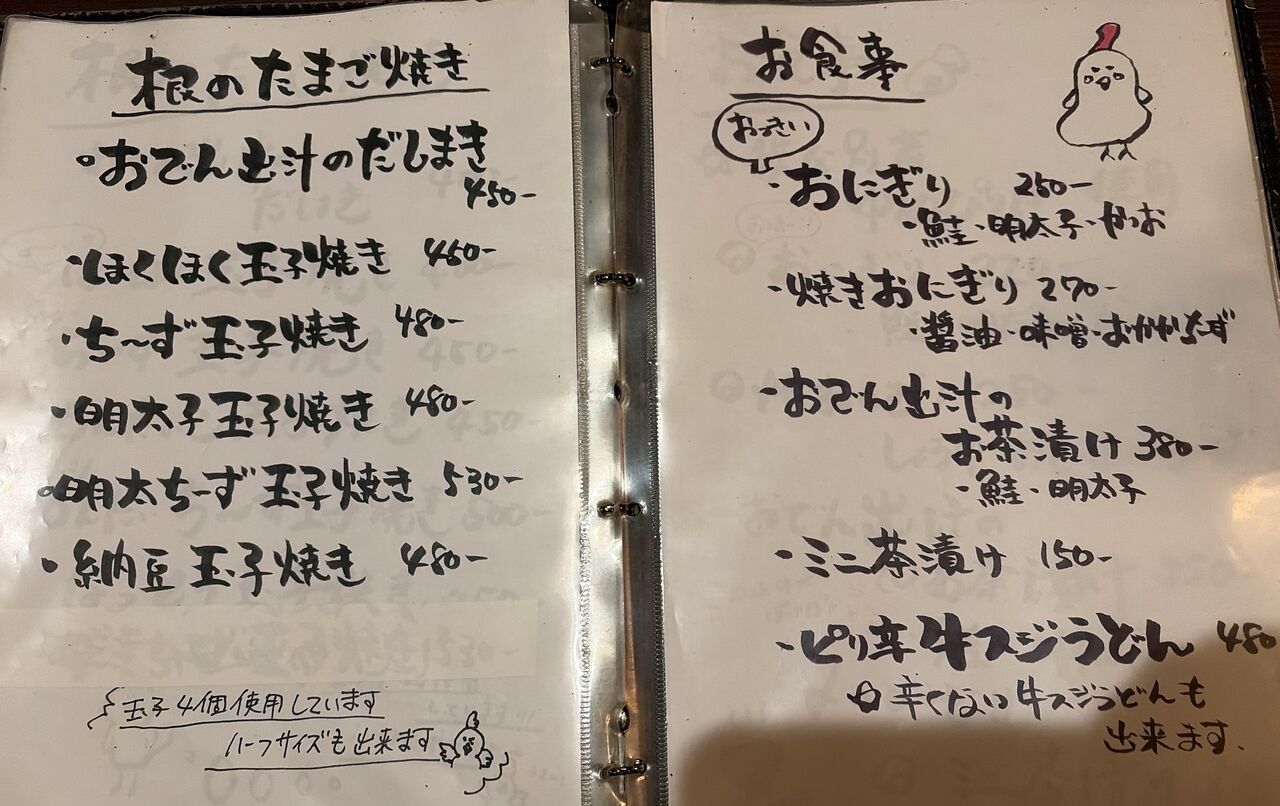 根のたまご焼き
おでん出汁のだしまき
450-
・ほくほく玉子焼き 450-
・ち〜ず玉子焼き 480-
・明太子玉子焼き 480-
明太ちーず玉子焼き 530-
・納豆玉子焼き 480-
玉子4個使用しています
ハーフサイズも出来ます
お食事
おっきい
・おにぎり 250-
・鮭・明太子・かつお
・焼きおにぎり 270-
・醤油・味噌・おかかちーず
・おでん出汁の
お茶漬け 380-
・鮭・明太子
・ミニ茶漬け 150-
・ピリ辛牛スジうどん 480
辛くない牛スジうどんも
出来ます、